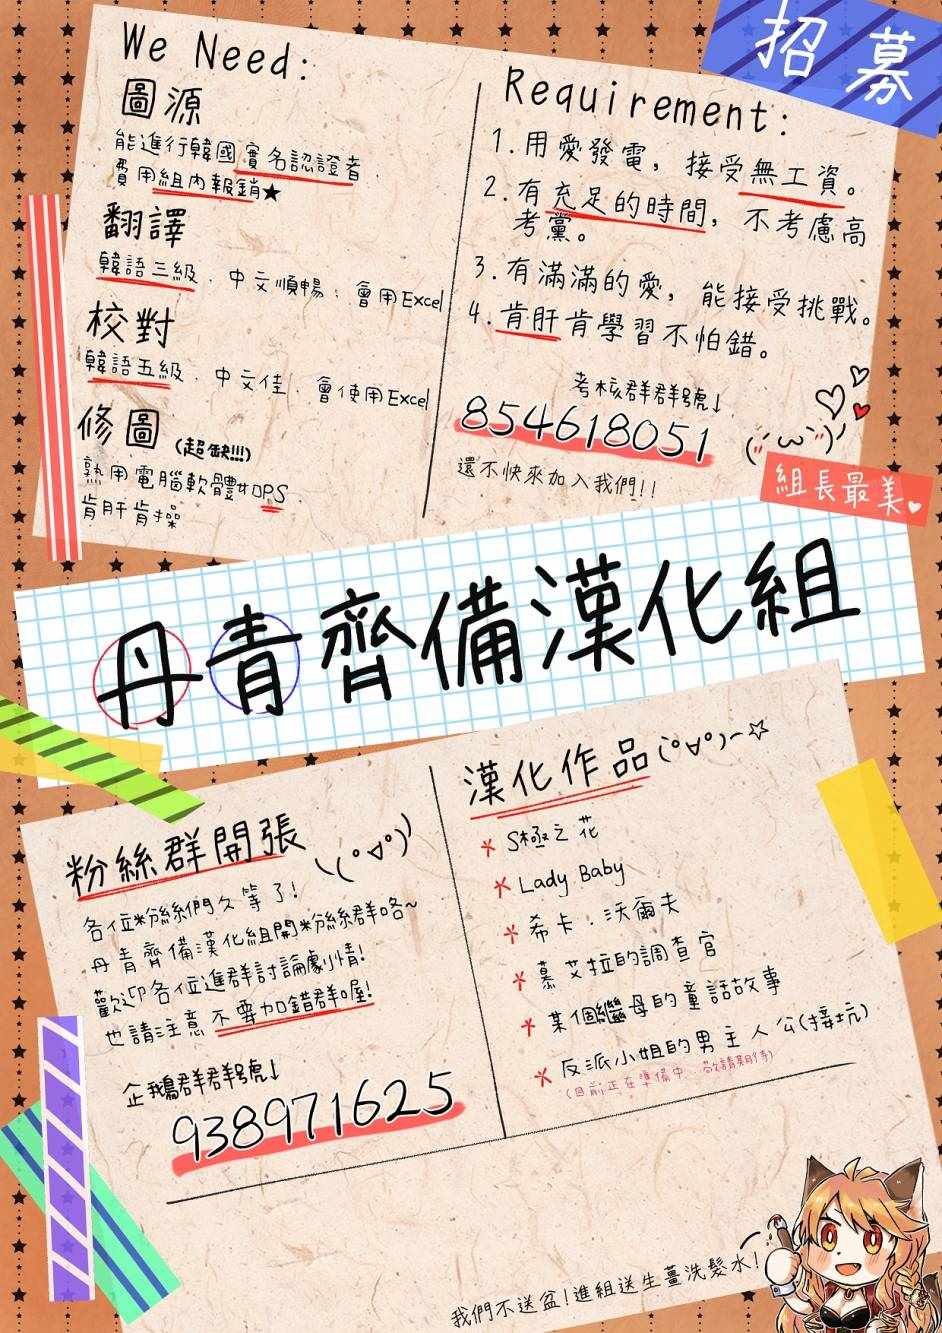 招募
We Need:
圖源
能進行韓國實名認證者.
費用組內報銷★
翻譯
韓語三級.中文順暢.會用Excel
校對
韓語五級.中文佳.會使用Excel
修圖(超缺!!!)
熟用電腦軟體如PS.
肯肝肯操
Requirement:
1.用愛發電,接受無工資。
2.有充足的時間,不考慮高
考黨。
3.有滿滿的愛,能接受挑戰。
4.肯肝肯學習不怕錯。
考核群群號↓
854618051
還不快來加入我們!!
組長最美
丹青齊備漢化組
粉絲群開張
各位粉絲們久等了!
丹青齊備漢化組開粉絲群咯~
歡迎各位進群討論劇情!
也請注意不要加錯群喔!
企鵝群群號↓
938971625
漢化作品
*S極之花
*Lady Baby
*希卡.沃爾夫
*慕艾拉的調查官
*某個繼母的童話故事
*反派小姐的男主人公(接坑)
(目前正在準備中.敬請期待)
我們不送盆!進組送生薑洗髮水!